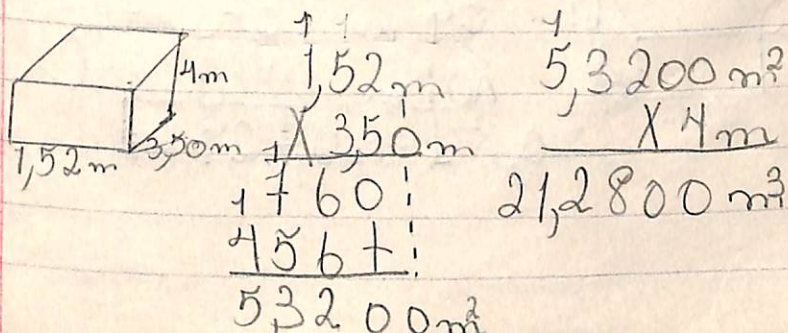 4m
1,52m 3,50m
1 1
1,52m
X 3,50m
1
1760
1
456+
5,3200m²
1
5,3200m²
X 4m
21,2800m³